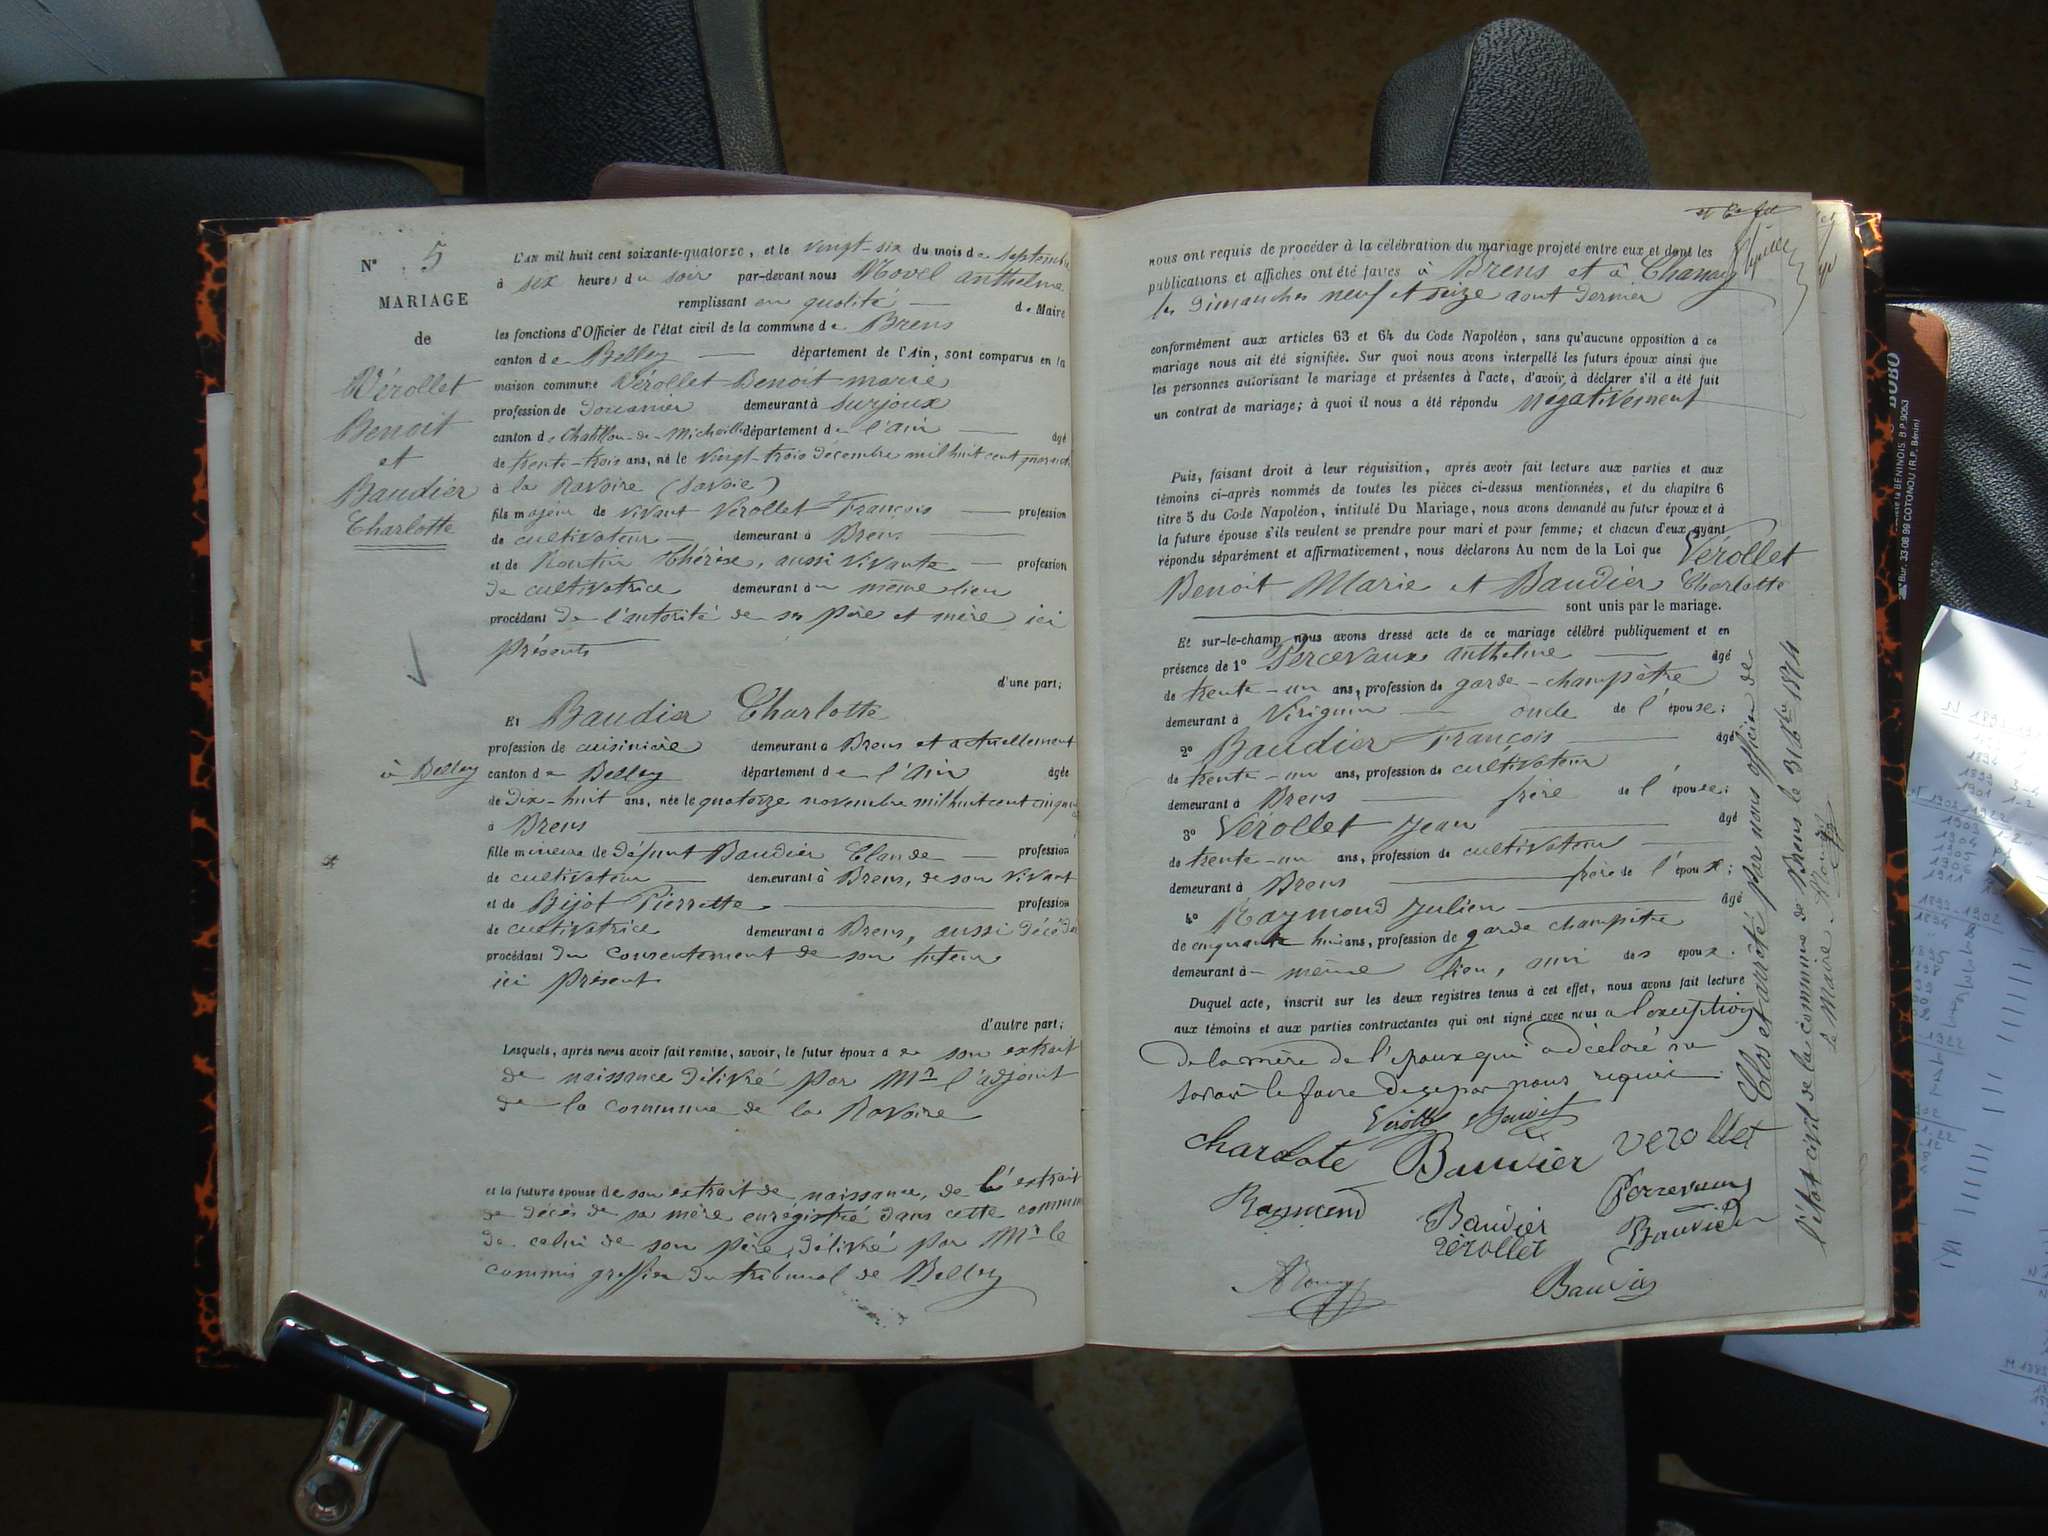 N° 5
MARIAGE
de
Vérollet
Benoit
et
Baudier
Charlotte
L'AN mil huit cent soixante-quatorze, et le vingt-six du mois de septembre
à six heures du soir par-devant nous Novel anthelme
remplissant en qualité de Maire
les fonctions d'Officier de l'état civil de la commune de Brens
canton de Belley département de l'Ain, sont comparus en la
maison commune Vérollet Benoit marie
profession de Douanier demeurant à Surjoux
canton de Chatillon-de-Michaille département de l'ain âgé
de trente-trois ans, né le vingt-trois décembre mil huit cent quarante
à la Ravoire (Savoie)
fils majeur de vivant Vérollet François profession
de cultivateur demeurant à Brens
et de Routin Thérèse, aussi vivante profession
de cultivatrice demeurant au même lieu
procédant de l'autorité de ses père et mère ici
présents
d'une part;
Et Baudier Charlotte
profession de cuisinière demeurant à Brens et actuellement
à Belley
canton de Belley département de l'ain âgée
de Dix-huit ans, née le quatorze novembre mil huit cent cinquante
à Brens
fille mineure de défunt Baudier Claude profession
de cultivateur demeurant à Brens, de son vivant
et de Bijot Pierrette profession
de cultivatrice demeurant à Brens, aussi décédée
procédant du consentement de son tuteur
ici présent
d'autre part;
Lesquels, après nous avoir fait remise, savoir, le futur époux de son extrait
de naissance délivré par Mr l'adjoint
de la commune de la Ravoire
et la future épouse de son extrait de naissance, de l'extrait
de décès de sa mère enrégistré dans cette commune
de celui de son père, délivré par Mr le
commis greffier du tribunal de Belley
nous ont requis de procéder à la célébration du mariage projeté entre eux et dont les
publications et affiches ont été faites à Brens et à Chanay
les Dimanches neuf et seize aout dernier
conformément aux articles 63 et 64 du Code Napoléon, sans qu'aucune opposition à ce
mariage nous ait été signifiée. Sur quoi nous avons interpellé les futurs époux ainsi que
les personnes autorisant le mariage et présentes à l'acte, d'avoir à déclarer s'il a été fait
un contrat de mariage; à quoi il nous a été répondu négativement
Puis, faisant droit à leur réquisition, après avoir fait lecture aux parties et aux
témoins ci-après nommés de toutes les pièces ci-dessus mentionnées, et du chapitre 6
titre 5 du Code Napoléon, intitulé Du Mariage, nous avons demandé au futur époux et à
la future épouse s'ils veulent se prendre pour mari et pour femme; et chacun d'eux ayant
répondu séparément et affirmativement, nous déclarons Au nom de la Loi que Vérollet
Benoit Marie et Baudier Charlotte
sont unis par le mariage.
Et sur-le-champ nous avons dressé acte de ce mariage célébré publiquement et en
présence de 1° Percevaux anthelme âgé
de trente-un ans, profession de garde-champêtre
demeurant à Virignin oncle de l'épouse;
2° Baudier François âgé
de trente-un ans, profession de cultivateur
demeurant à Brens frère de l'épouse;
3° Vérollet Jean âgé
de trente-un ans, profession de cultivateur
demeurant à Brens frère de l'époux;
4° Raymond Julien âgé
de cinquante huit ans, profession de garde champêtre
demeurant au même lieu, ami des époux.
Duquel acte, inscrit sur les deux registres tenus à cet effet, nous avons fait lecture
aux témoins et aux parties contractantes qui ont signé avec nous a l'exception
de la mère de l'époux qui a déclaré ne
savoir le faire de ce par nous requise.
Vérollet Benoit
charlote Baudier verollet
Raymond Baudier Percevaux
vérollet Baudier
Baudier
Clos et arrêté par nous officier de
l'état civil de la commune de Brens le 31 Xbre 1874
Le Maire
BOBO